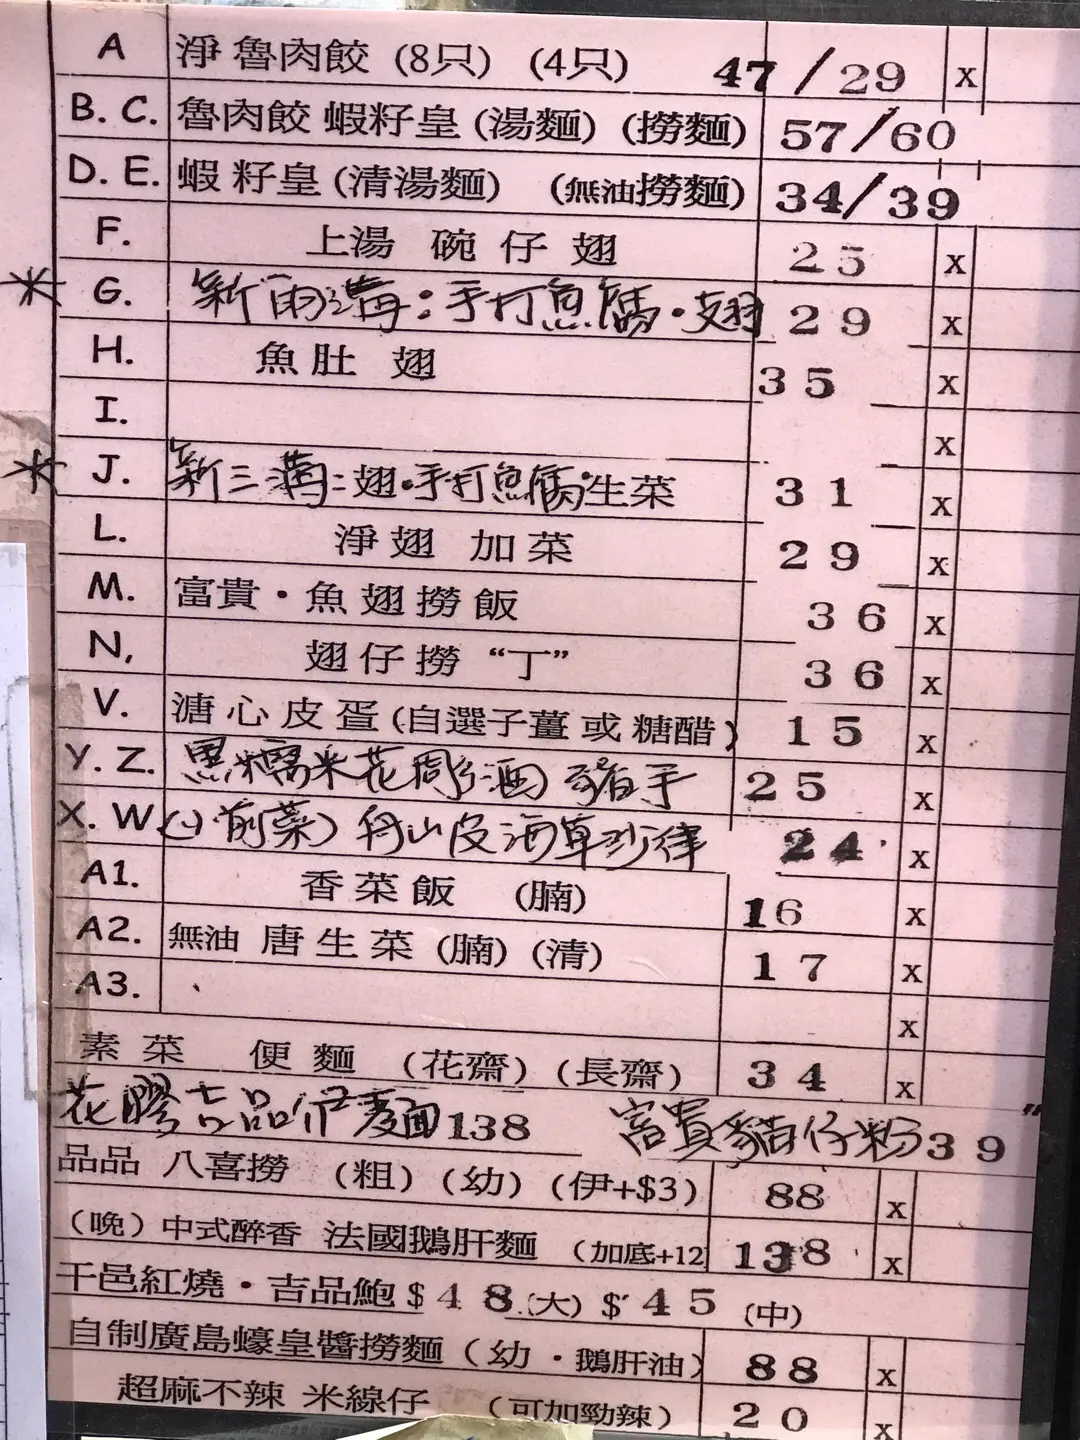 A 淨 魯肉餃 (8只) (4只) 47/29 x
B. C. 魯肉餃 蝦籽皇 (湯麵) (撈麵) 57/60
D. E. 蝦 籽皇 (清湯麵) (無油撈麵) 34/39
F. 上湯 碗 仔 翅 25 x
* G. 新雨溝:手打魚腐·翅 29 x
H. 魚肚 翅 35 x
I. x
* J. 新三溝:翅·手打魚腐·生菜 31 x
L. 淨翅 加菜 29 x
M. 富貴·魚翅撈飯 36 x
N, 翅仔撈 “丁” 36 x
V. 溏心皮蛋(自選子薑或糖醋) 15 x
Y. Z. 黑糯米花彫酒 豬手 25 x
X. W. (前菜) 舟山皮海草沙律 24 x
A1. 香菜飯 (腩) 16 x
A2. 無油 唐生菜 (腩) (清) 17 x
A3. x
素菜 便麵 (花齋) (長齋) 34 x
花膠吉品伊麵138 富貴豬仔粉39
品品 八喜撈 (粗) (幼) (伊+$3) 88 x
(晚) 中式醉香 法國鵝肝麵 (加底+12 138 x
干邑紅燒·吉品鮑$48(大) $45 (中)
自制廣島蠔皇醬撈麵 (幼·鵝肝油) 88 x
超麻不辣 米線仔 (可加勁辣) 20 x